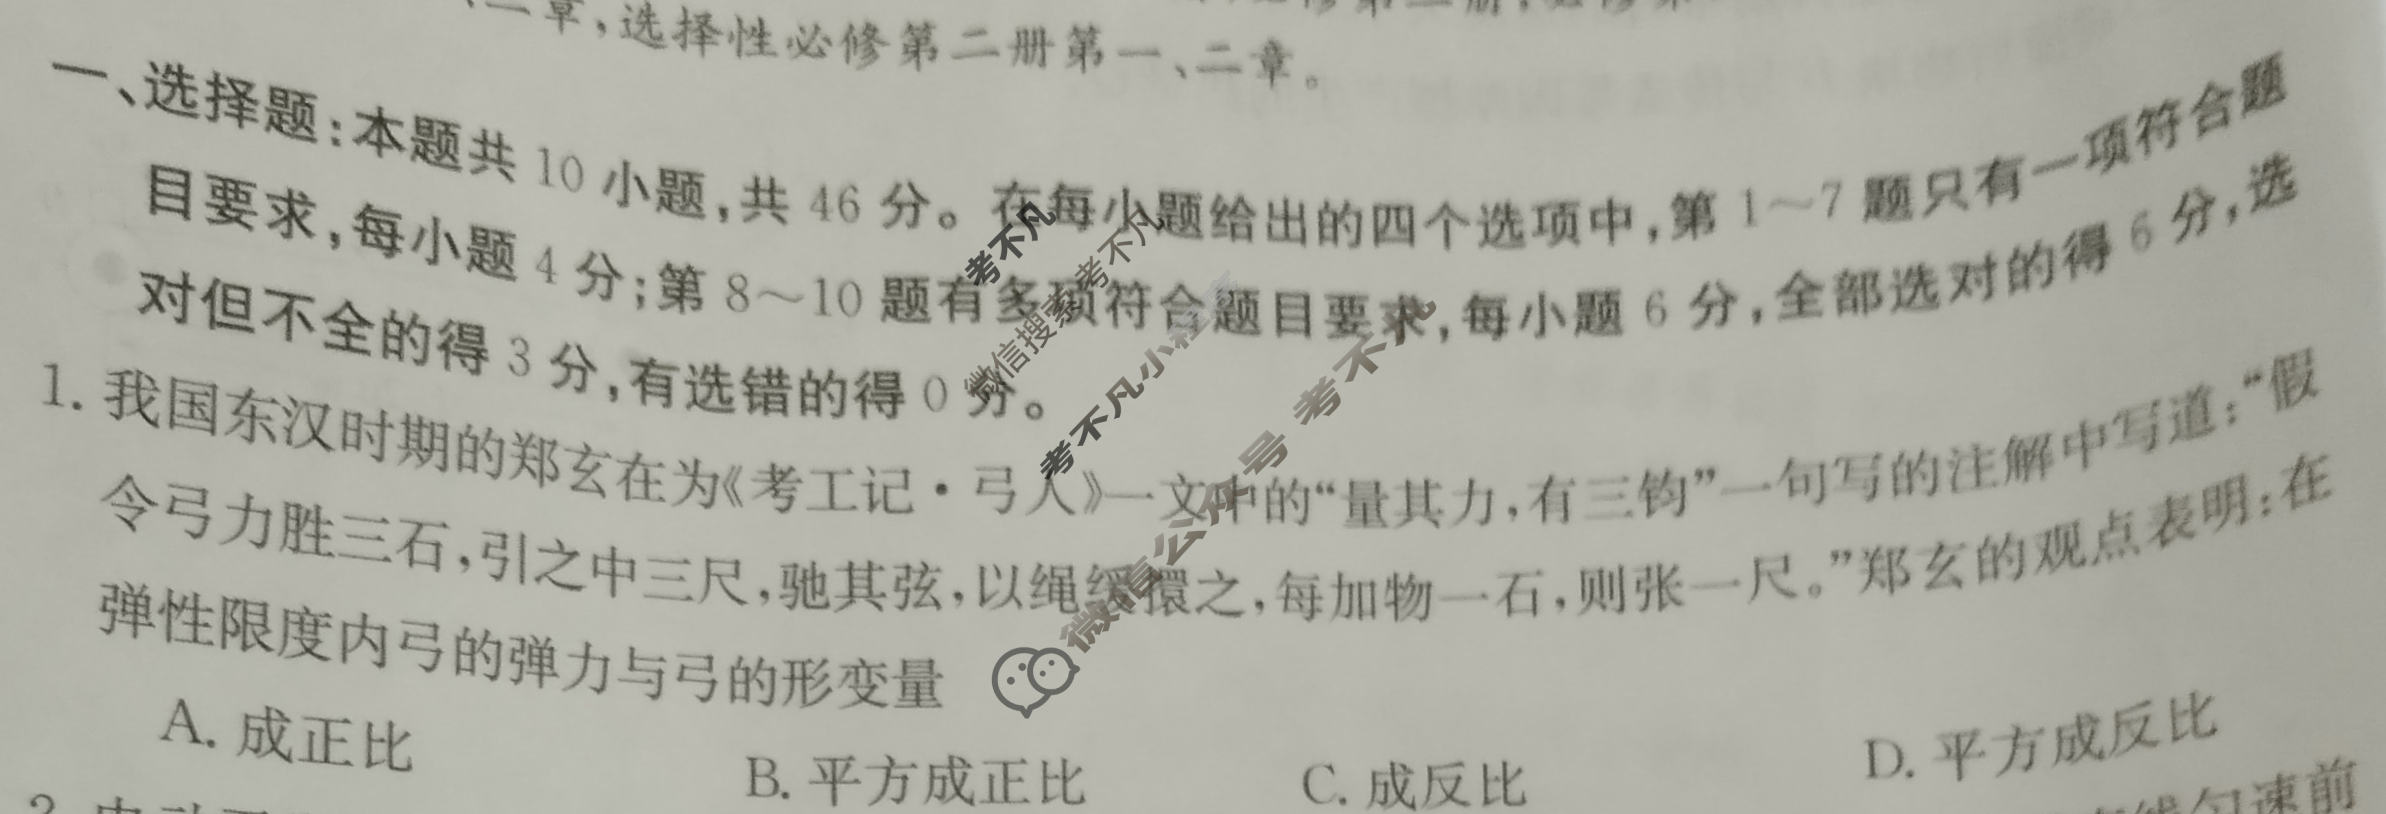 章,选择性必修第二册第一、二章。
一、选择题:本题共 10 小题,共 46 分。在每小题给出的四个选项中,第 1～7 题只有一项符合题
目要求,每小题 4 分;第 8～10 题有多项符合题目要求,每小题 6 分,全部选对的得 6 分,选
对但不全的得 3 分,有选错的得 0 分。
1. 我国东汉时期的郑玄在为《考工记·弓人》一文中的“量其力,有三钧”一句写的注解中写道:“假
令弓力胜三石,引之中三尺,驰其弦,以绳缓擐之,每加物一石,则张一尺。”郑玄的观点表明:在
弹性限度内弓的弹力与弓的形变量
A. 成正比 B. 平方成正比 C. 成反比 D. 平方成反比
匀速前
考不凡
微信搜索考不凡
考不凡小程序
微信公众号 考不凡